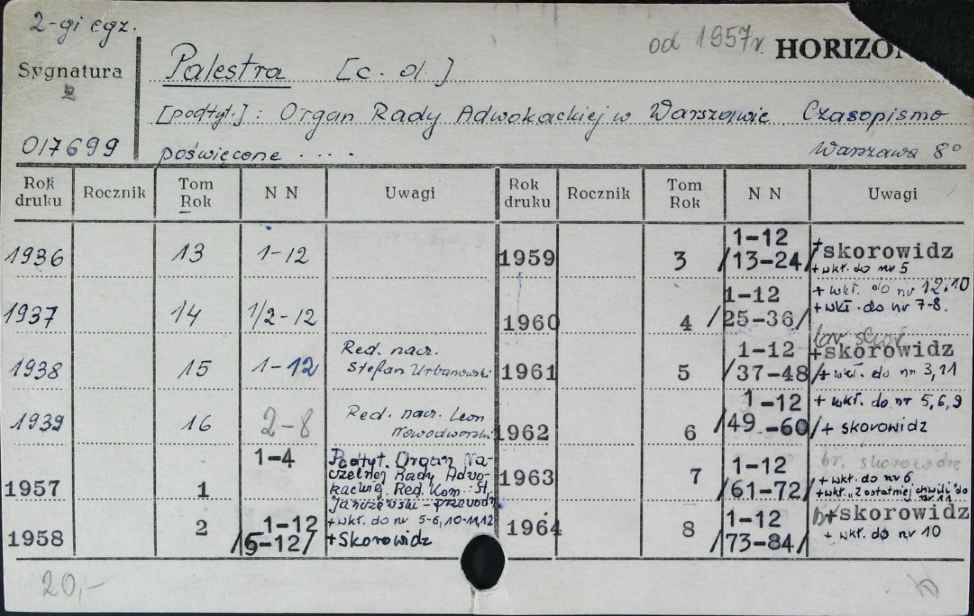 2-gi egz.
od 1957r. HORIZON
Sygnatura
017699
Palestra [c. d.]
[podtyt.]: Organ Rady Adwokackiej w Warszawie Czasopismo
poświęcone .... Warszawa 8°
Rok druku Rocznik Tom Rok NN Uwagi Rok druku Rocznik Tom Rok NN Uwagi
1936 13 1-12
1937 14 1/2-12
1938 15 1-12 Red. nacz. Stefan Urbanowski
1939 16 2-8 Red. nacz. Leon Nowodworski
1957 1 1-4 Podtyt. Organ Na-
czelnej Rady Adwo-
kackiej. Red. Kom. St.
Janczewski - przewodn.
1958 2 1-12 /5-12/ + wkł. do nr 5-6, 10-11,12
+ Skorowidz
1959 3 1-12 /13-24/ + skorowidz
+ wkł. do nr 5
1960 4 1-12 /25-36/ + wkł. do nr 12,10
+ wkł. do nr 7-8.
br. skor.
1961 5 1-12 /37-48/ + skorowidz
+ wkł. do nr 3,11
1962 6 1-12 /49-60/ + wkł. do nr 5,6,9
+ skorowidz
1963 7 1-12 /61-72/ br. skorowidzu
+ wkł. do nr 6
+ wkł. "Z ostatniej chwili" do nr 11
1964 8 1-12 /73-84/ + skorowidz
+ wkł. do nr 10
20,-